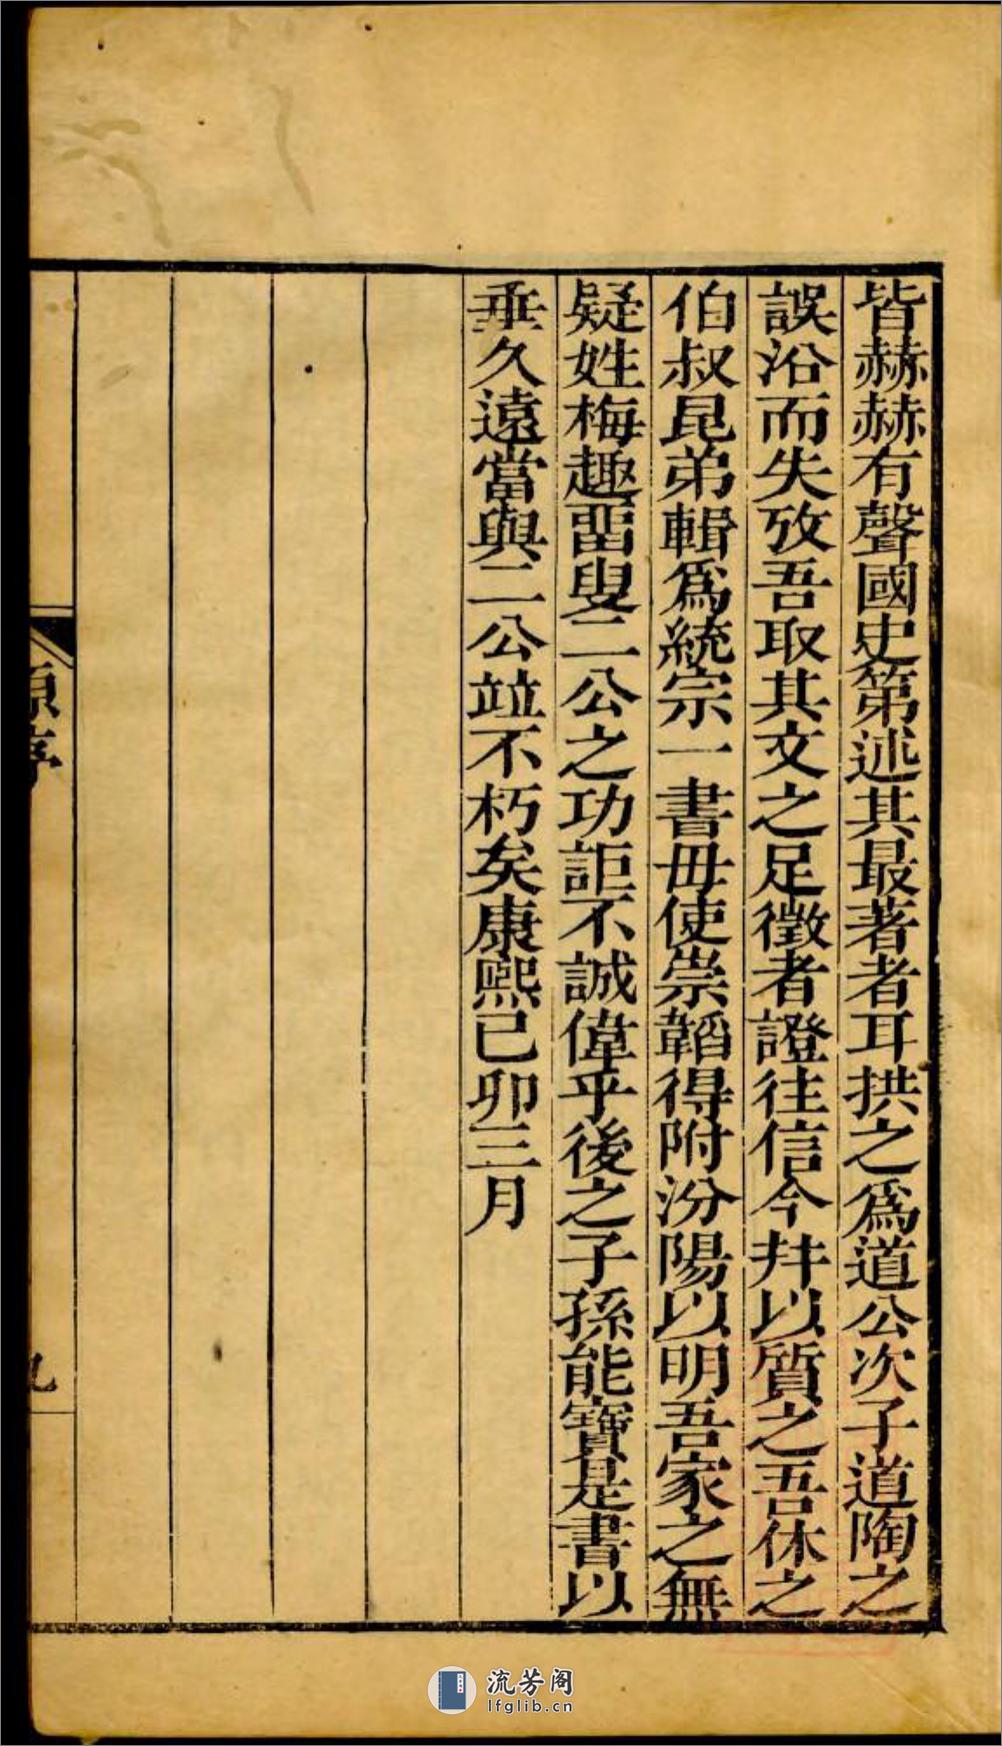 皆赫赫有聲國史第述其最著者耳拱之爲道公次子道陶之
誤沿而失攷吾取其文之足徵者證往信今幷以質之吾休之
伯叔昆弟輯爲統宗一書毋使崇韜得附汾陽以明吾家之無
疑姓梅趣畱叟二公之功詎不誠偉乎後之子孫能寶是書以
垂久遠當與二公竝不朽矣康熙已卯三月
原序
九
流芳阁
lfglib.cn